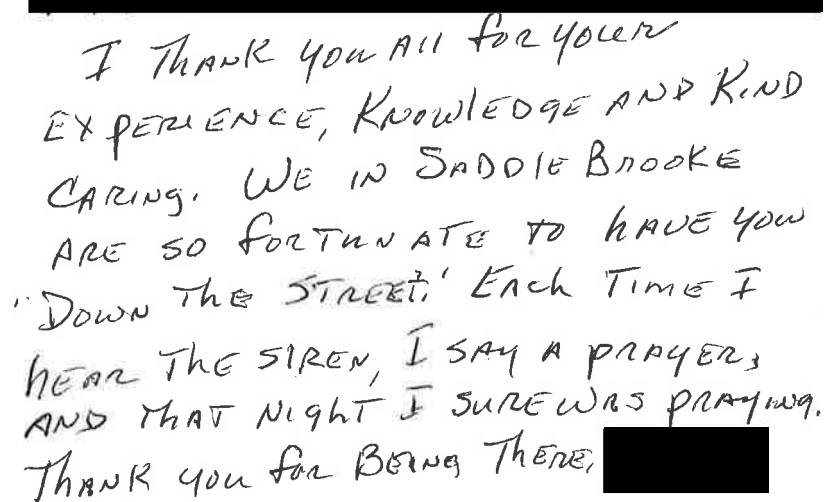 I THANK YOU All for YOUR
EXPERIENCE, KNOWlEDGE AND KIND
CARING. WE IN SADDlEBROOKE
ARE SO fORTUNATE TO hAVE YOU
"DOWN ThE STREET." EACh TIME I
hEAR ThE SIREN, I SAY A pRAYER,
AND ThAT NIGhT I SURE WAS pRAYING.
ThANK YOU foR BEING ThERE,